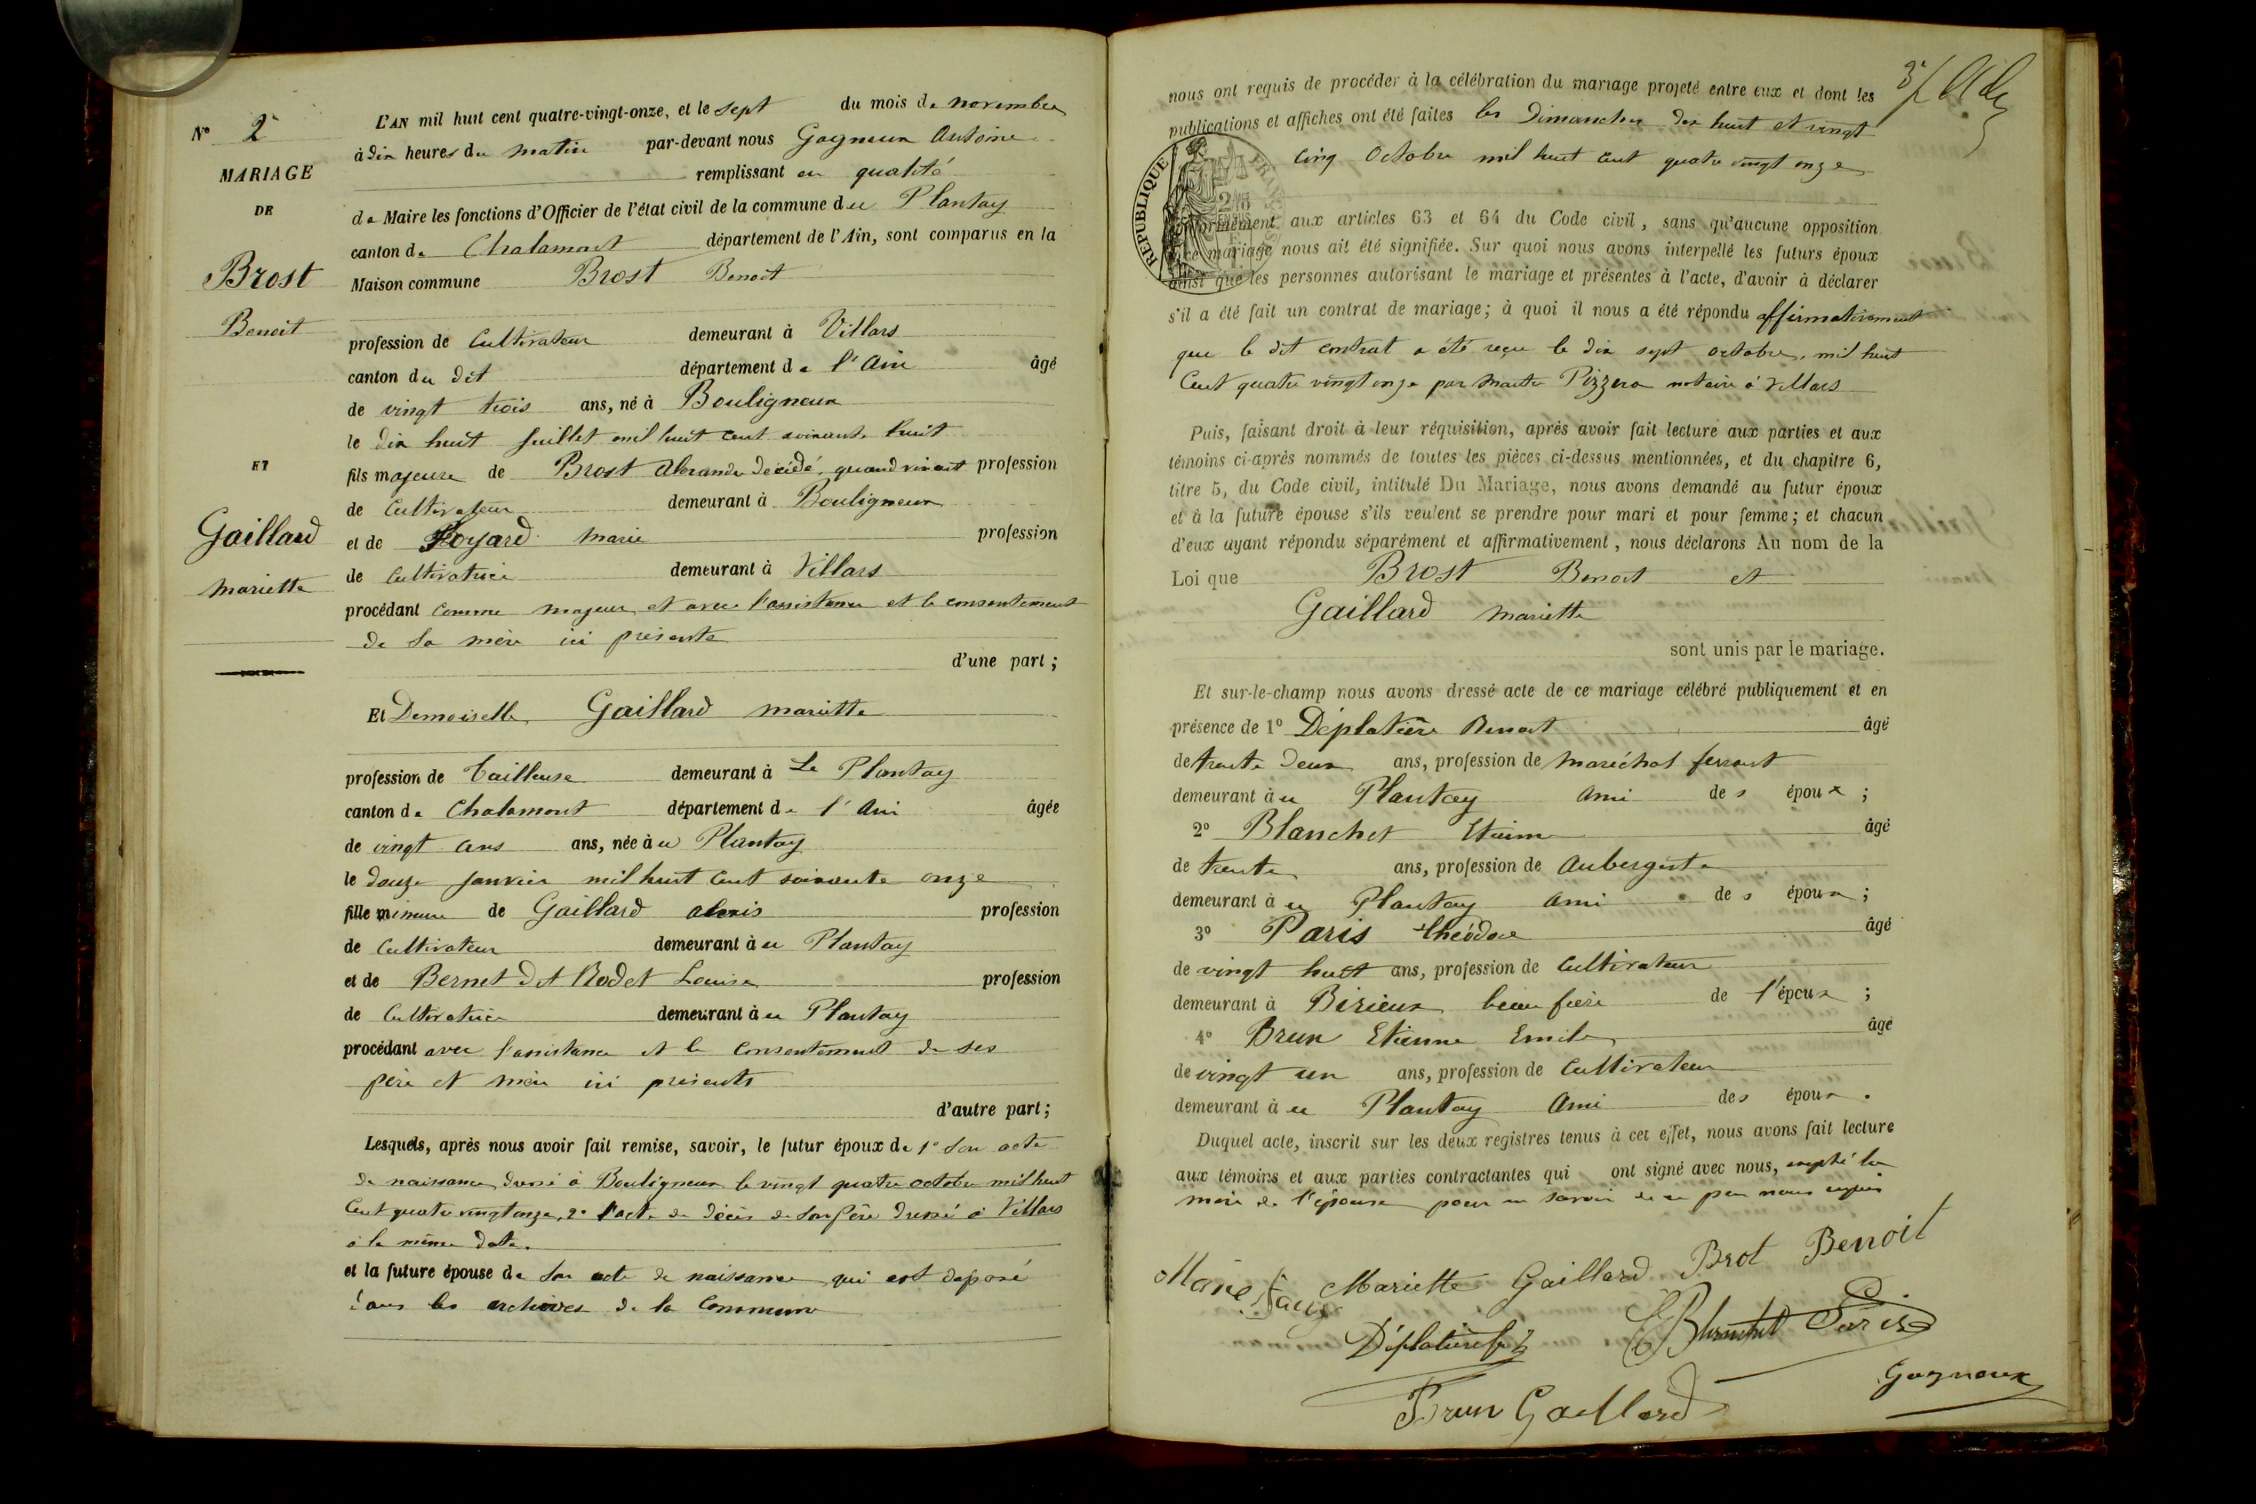 N° 2
MARIAGE
DE
Brost
Benoit
ET
Gaillard
Mariette
L'AN mil huit cent quatre-vingt-onze, et le sept du mois de novembre
à dix heures du matin par-devant nous Gagneux Antoine
remplissant en qualité
de Maire les fonctions d'Officier de l'état civil de la commune du Plantay
canton de Chalamont département de l'Ain, sont comparus en la
Maison commune Brost Benoit
profession de Cultivateur demeurant à Villars
canton du dit département de l'Ain âgé
de vingt trois ans, né à Bouligneux
le dix huit Juillet mil huit cent soixante huit
fils majeure de Brost Alexandre décédé, quand vivait profession
de Cultivateur demeurant à Bouligneux
et de Foyard Marie profession
de Cultivatrice demeurant à Villars
procédant comme majeur et avec l'assistance et le consentement
de sa mère ici présente
d'une part ;
Et Demoiselle Gaillard Mariette
profession de Tailleuse demeurant à Le Plantay
canton de Chalamont département de l'Ain âgée
de vingt ans ans, née à u Plantay
le douze Janvier mil huit cent soixante onze
fille mineure de Gaillard Alexis profession
de Cultivateur demeurant à u Plantay
et de Bernet dit Rodet Louise profession
de Cultivatrice demeurant à u Plantay
procédant avec l'assistance et le consentement de ses
père et mère ici présents
d'autre part ;
Lesquels, après nous avoir fait remise, savoir, le futur époux de 1° Son acte
de naissance dressé à Bouligneux le vingt quatre octobre mil huit
Cent quatre vingt onze, 2° l'acte de décès de son père dressé à Villars
à la même date.
et la future épouse de son acte de naissance qui est déposé
dans les archives de la Commune
nous ont requis de procéder à la célébration du mariage projeté entre eux et dont les
publications et affiches ont été faites les Dimanches dix huit et vingt
cinq Octobre mil huit cent quatre vingt onze
REPUBLIQUE FRANÇAISE
conformément aux articles 63 et 64 du Code civil, sans qu'aucune opposition
à ce mariage nous ait été signifiée. Sur quoi nous avons interpellé les futurs époux
ainsi que les personnes autorisant le mariage et présentes à l'acte, d'avoir à déclarer
s'il a été fait un contrat de mariage ; à quoi il nous a été répondu affirmativement
que le dit contrat a été reçu le dix sept octobre, mil huit
Cent quatre vingt onze par Maître Pizzera notaire à Villars
Puis, faisant droit à leur réquisition, après avoir fait lecture aux parties et aux
témoins ci-après nommés de toutes les pièces ci-dessus mentionnées, et du chapitre 6,
titre 5, du Code civil, intitulé Du Mariage, nous avons demandé au futur époux
et à la future épouse s'ils veulent se prendre pour mari et pour femme ; et chacun
d'eux ayant répondu séparément et affirmativement, nous déclarons Au nom de la
Loi que Brost Benoit et
Gaillard Mariette
sont unis par le mariage.
Et sur-le-champ nous avons dressé acte de ce mariage célébré publiquement et en
présence de 1° Déplatière Benoit âgé
de trente deux ans, profession de Maréchal ferrant
demeurant à u Plantay Ami des époux ;
2° Blanchet Etienne âgé
de trente ans, profession de Aubergiste
demeurant à u Plantay Ami des époux ;
3° Paris Théodore âgé
de vingt huit ans, profession de Cultivateur
demeurant à Birieux beau frère de l'époux ;
4° Brun Etienne Emile âgé
de vingt un ans, profession de Cultivateur
demeurant à u Plantay Ami des époux.
Duquel acte, inscrit sur les deux registres tenus à cet effet, nous avons fait lecture
aux témoins et aux parties contractantes qui ont signé avec nous, excepté la
mère de l'épouse pour ne savoir de ce par nous requis
Mariette Gaillard Brot Benoit
Déplatière EBlanchet Paris
Brun Gaillard Gagneux